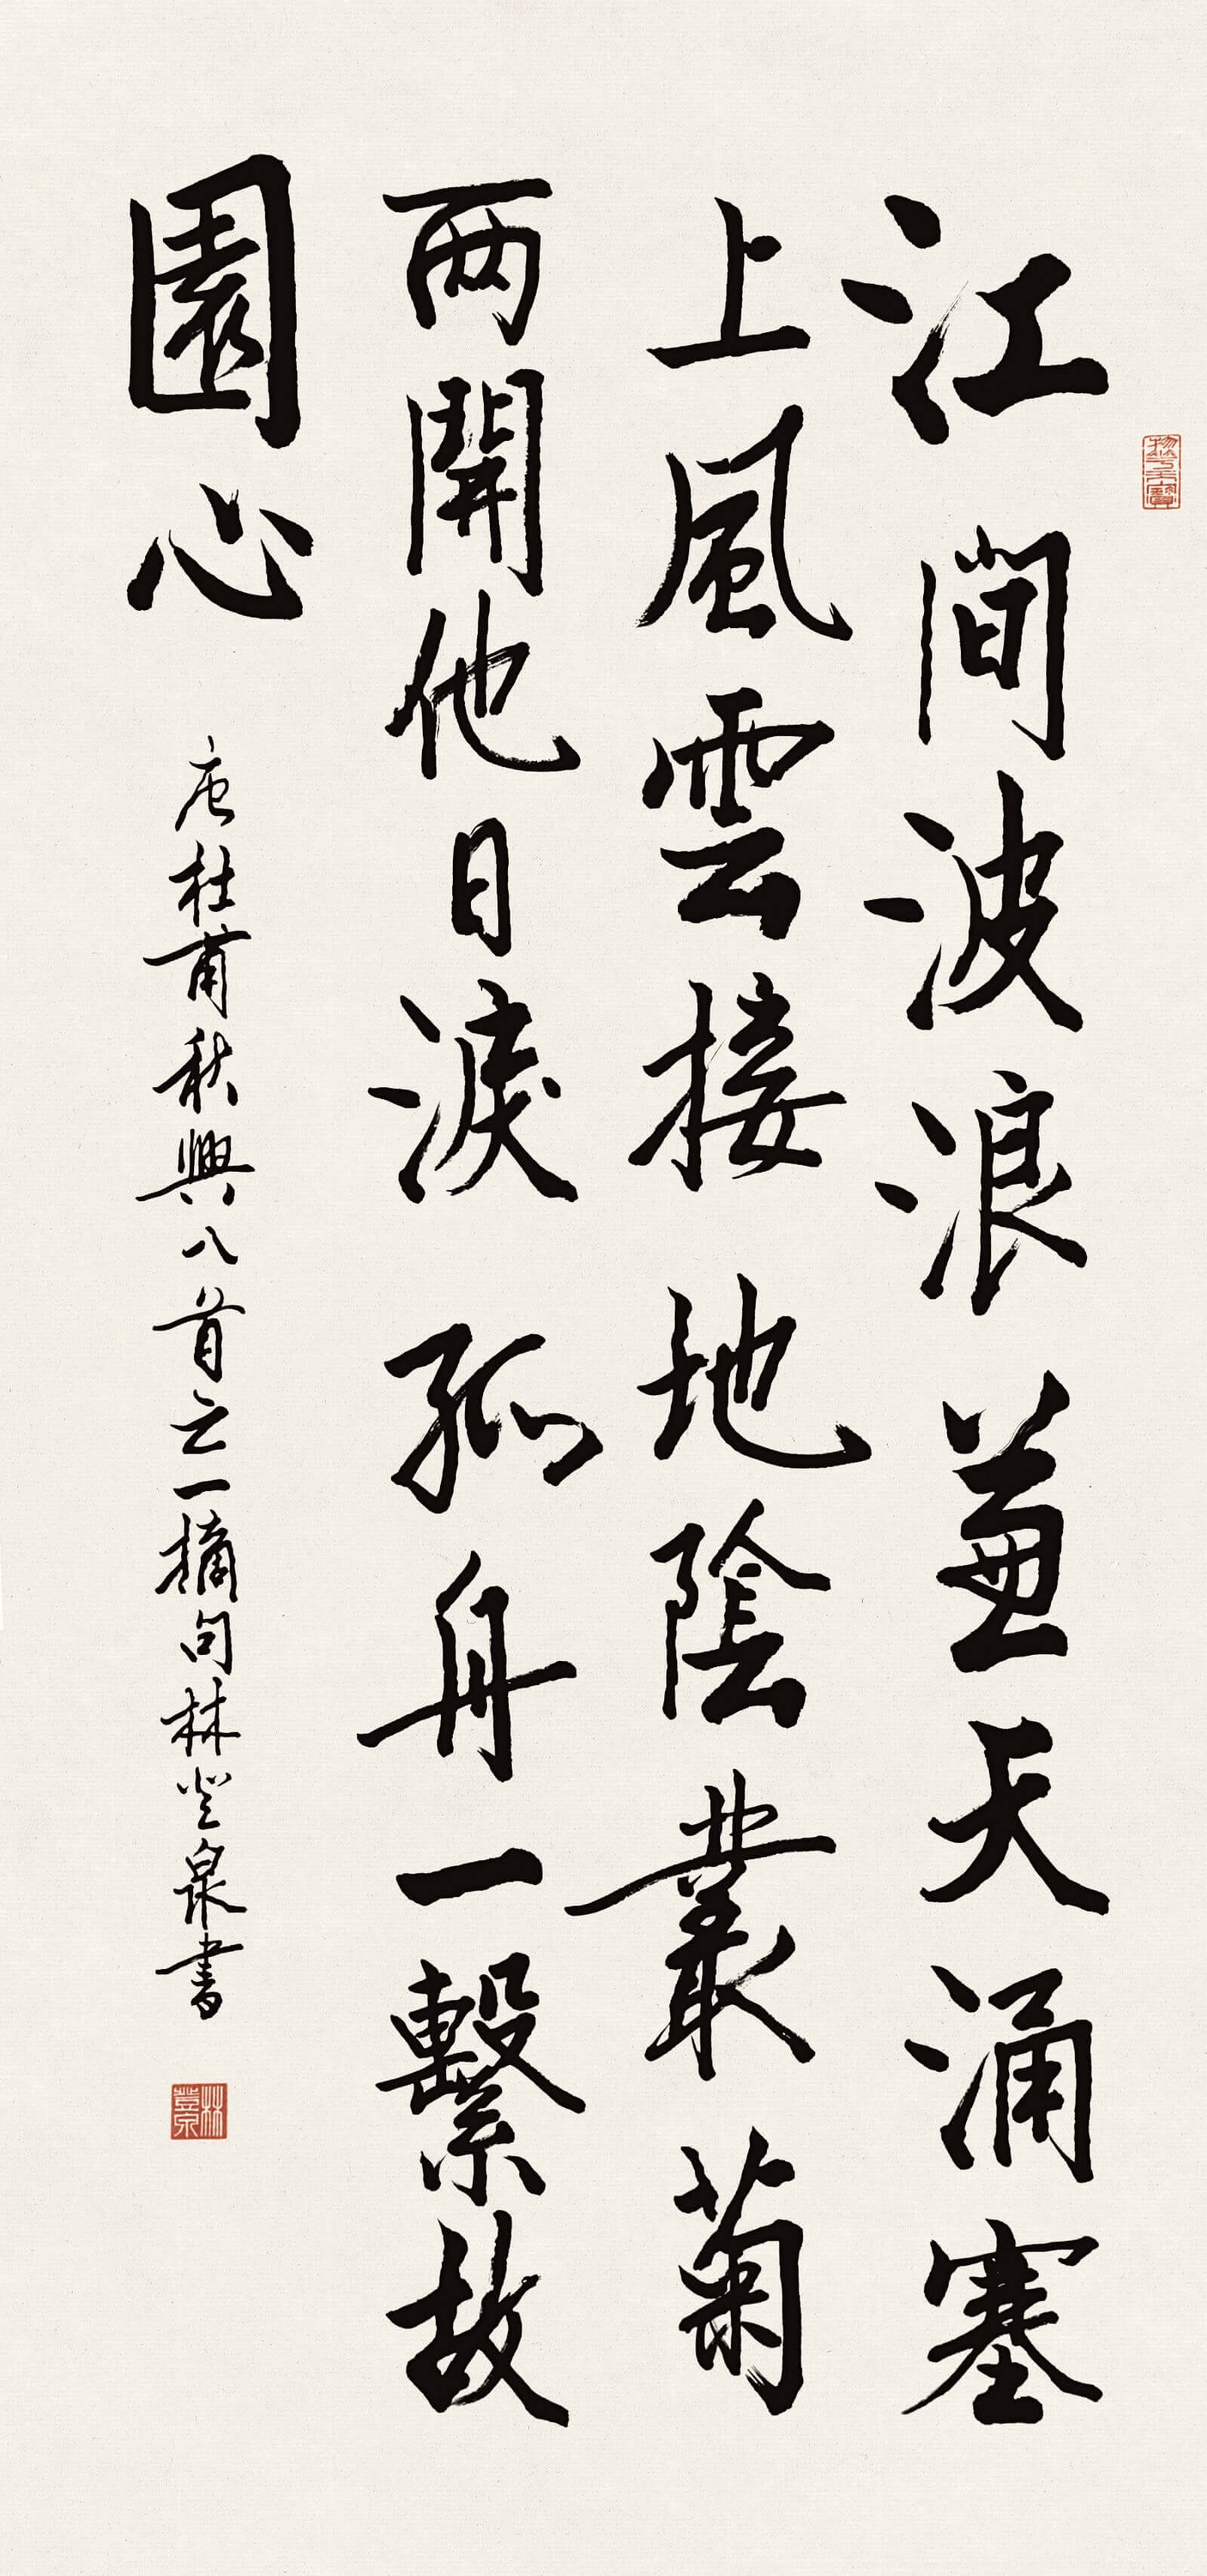 物華天寶
江間波浪兼天涌塞
上風雲接地陰叢菊
两開他日淚孤舟一繫故
園心
唐杜甫秋興八首之一摘句林登泉書